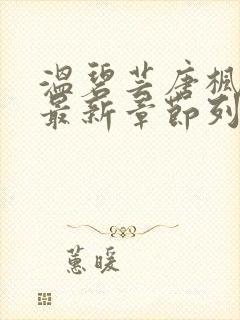 温碧芸唐枫
最新章节列
蕙暖